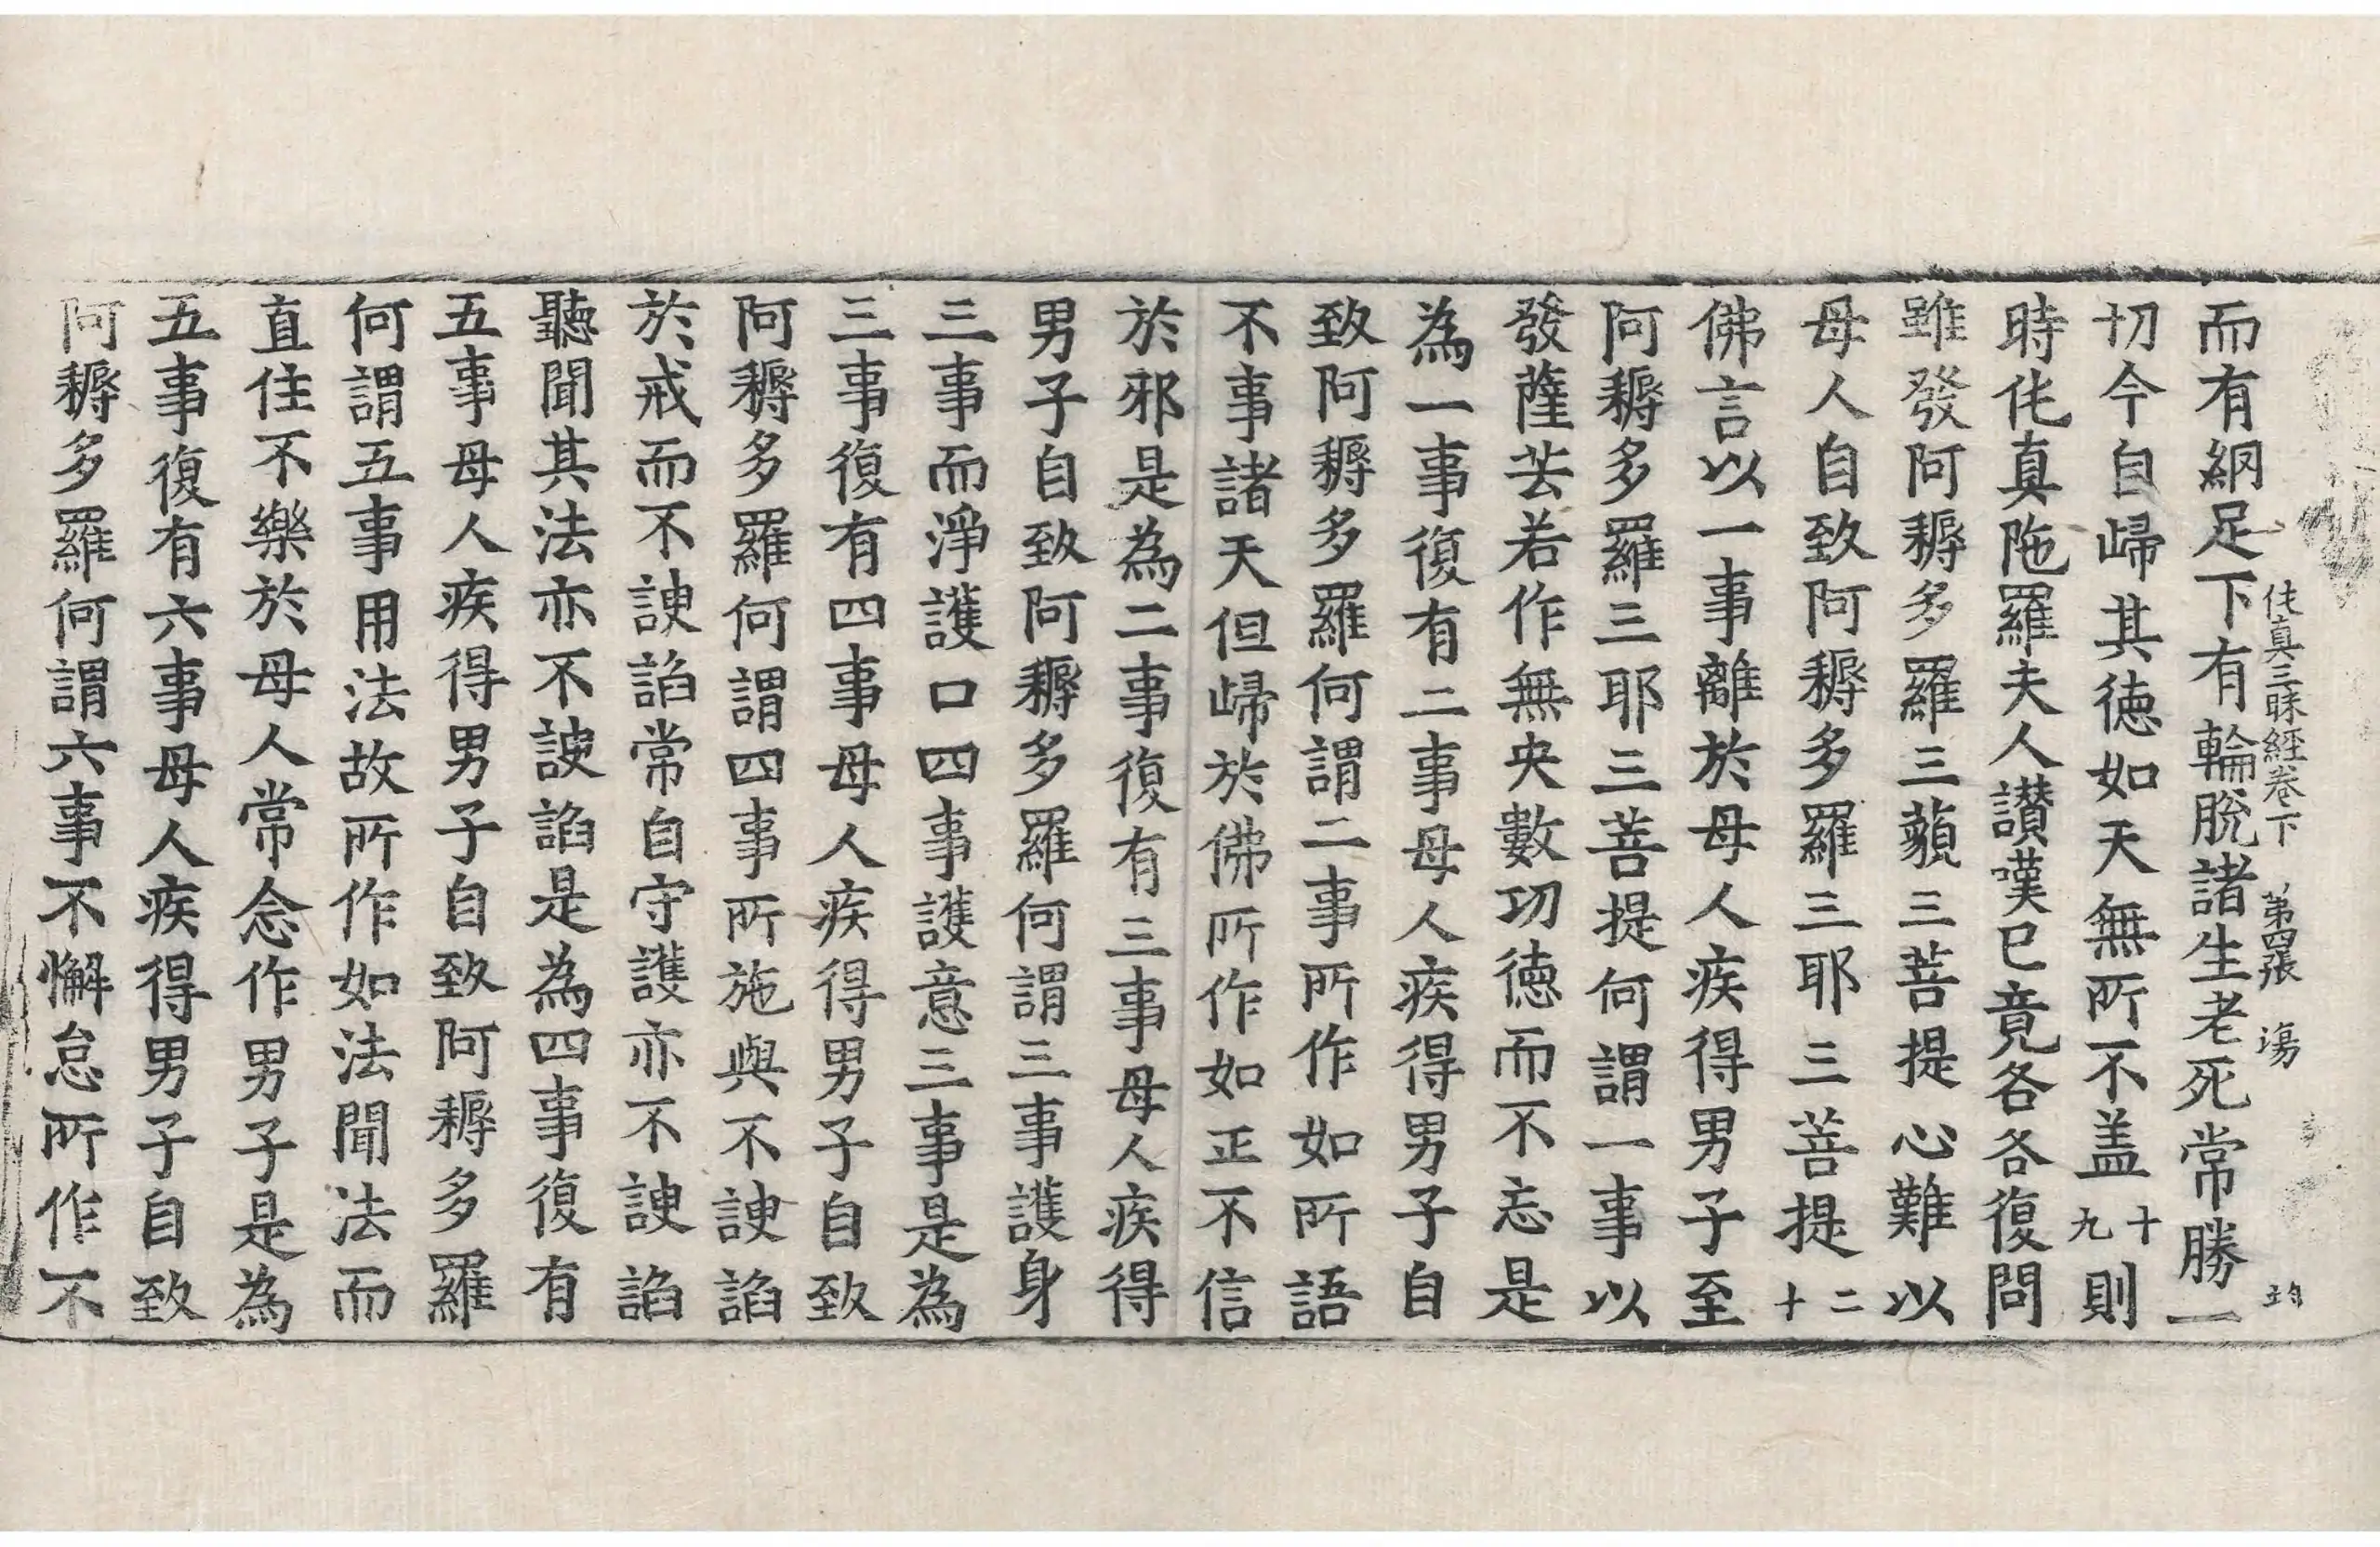 而有網足下有輪脫諸生老死常勝一
伅真三昧經卷下 第四張 
切今自歸其德如天無所不盖十九則
時伅真陁羅夫人讃嘆已竟各各復問
雖發阿耨多羅三藐三菩提心難以
母人自致阿耨多羅三耶三菩提二十
佛言以一事離於母人疾得男子至
阿耨多羅三耶三菩提何謂一事以
發薩芸若作無央數功德而不忘是
為一事復有二事母人疾得男子自
致阿耨多羅何謂二事所作如所語
不事諸天但歸於佛所作如正不信
於邪是為二事復有三事母人疾得
男子自致阿耨多羅何謂三事護身
三事而淨護口四事護意三事是為
三事復有四事母人疾得男子自致
阿耨多羅何謂四事所施與不諛諂
於戒而不諛諂常自守護亦不諛諂
聽聞其法亦不諛諂是為四事復有
五事母人疾得男子自致阿耨多羅
何謂五事用法故所作如法聞法而
直住不樂於母人常念作男子是為
五事復有六事母人疾得男子自致
阿耨多羅何謂六事不懈怠所作不